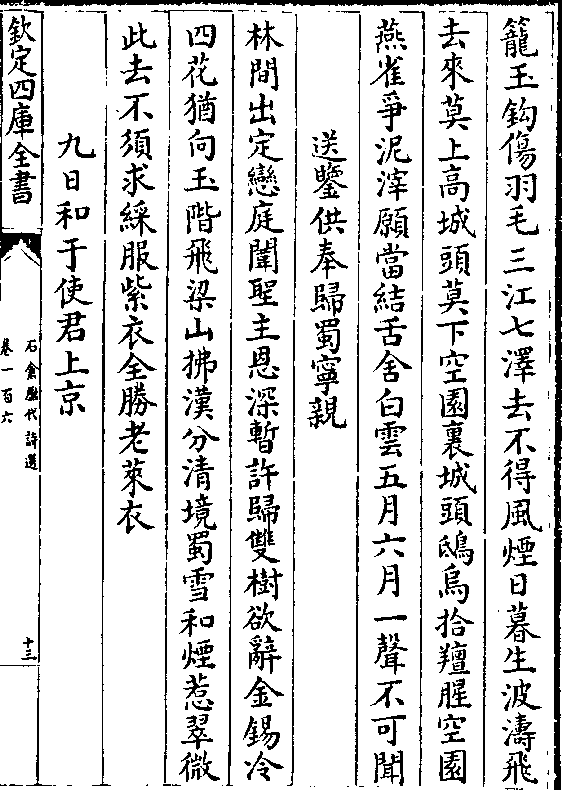 籠玉鈎傷羽毛三江七澤去不得風煙日暮生波濤飛
去來莫上高城頭莫下空園裏城頭鴟烏拾羶腥空園
燕雀爭泥滓願當結舌含白雲五月六月一聲不可聞
送鑒供奉歸蜀寧親
林間出定戀庭闈聖主恩深暫許歸雙樹欲辭金錫冷
四花猶向玉階飛梁山拂漢分清境蜀雪和煙惹翠微
此去不須求綵服紫衣全勝老萊衣
九日和于使君上京
欽定四庫全書
石倉歷代詩選
卷一百六
十三